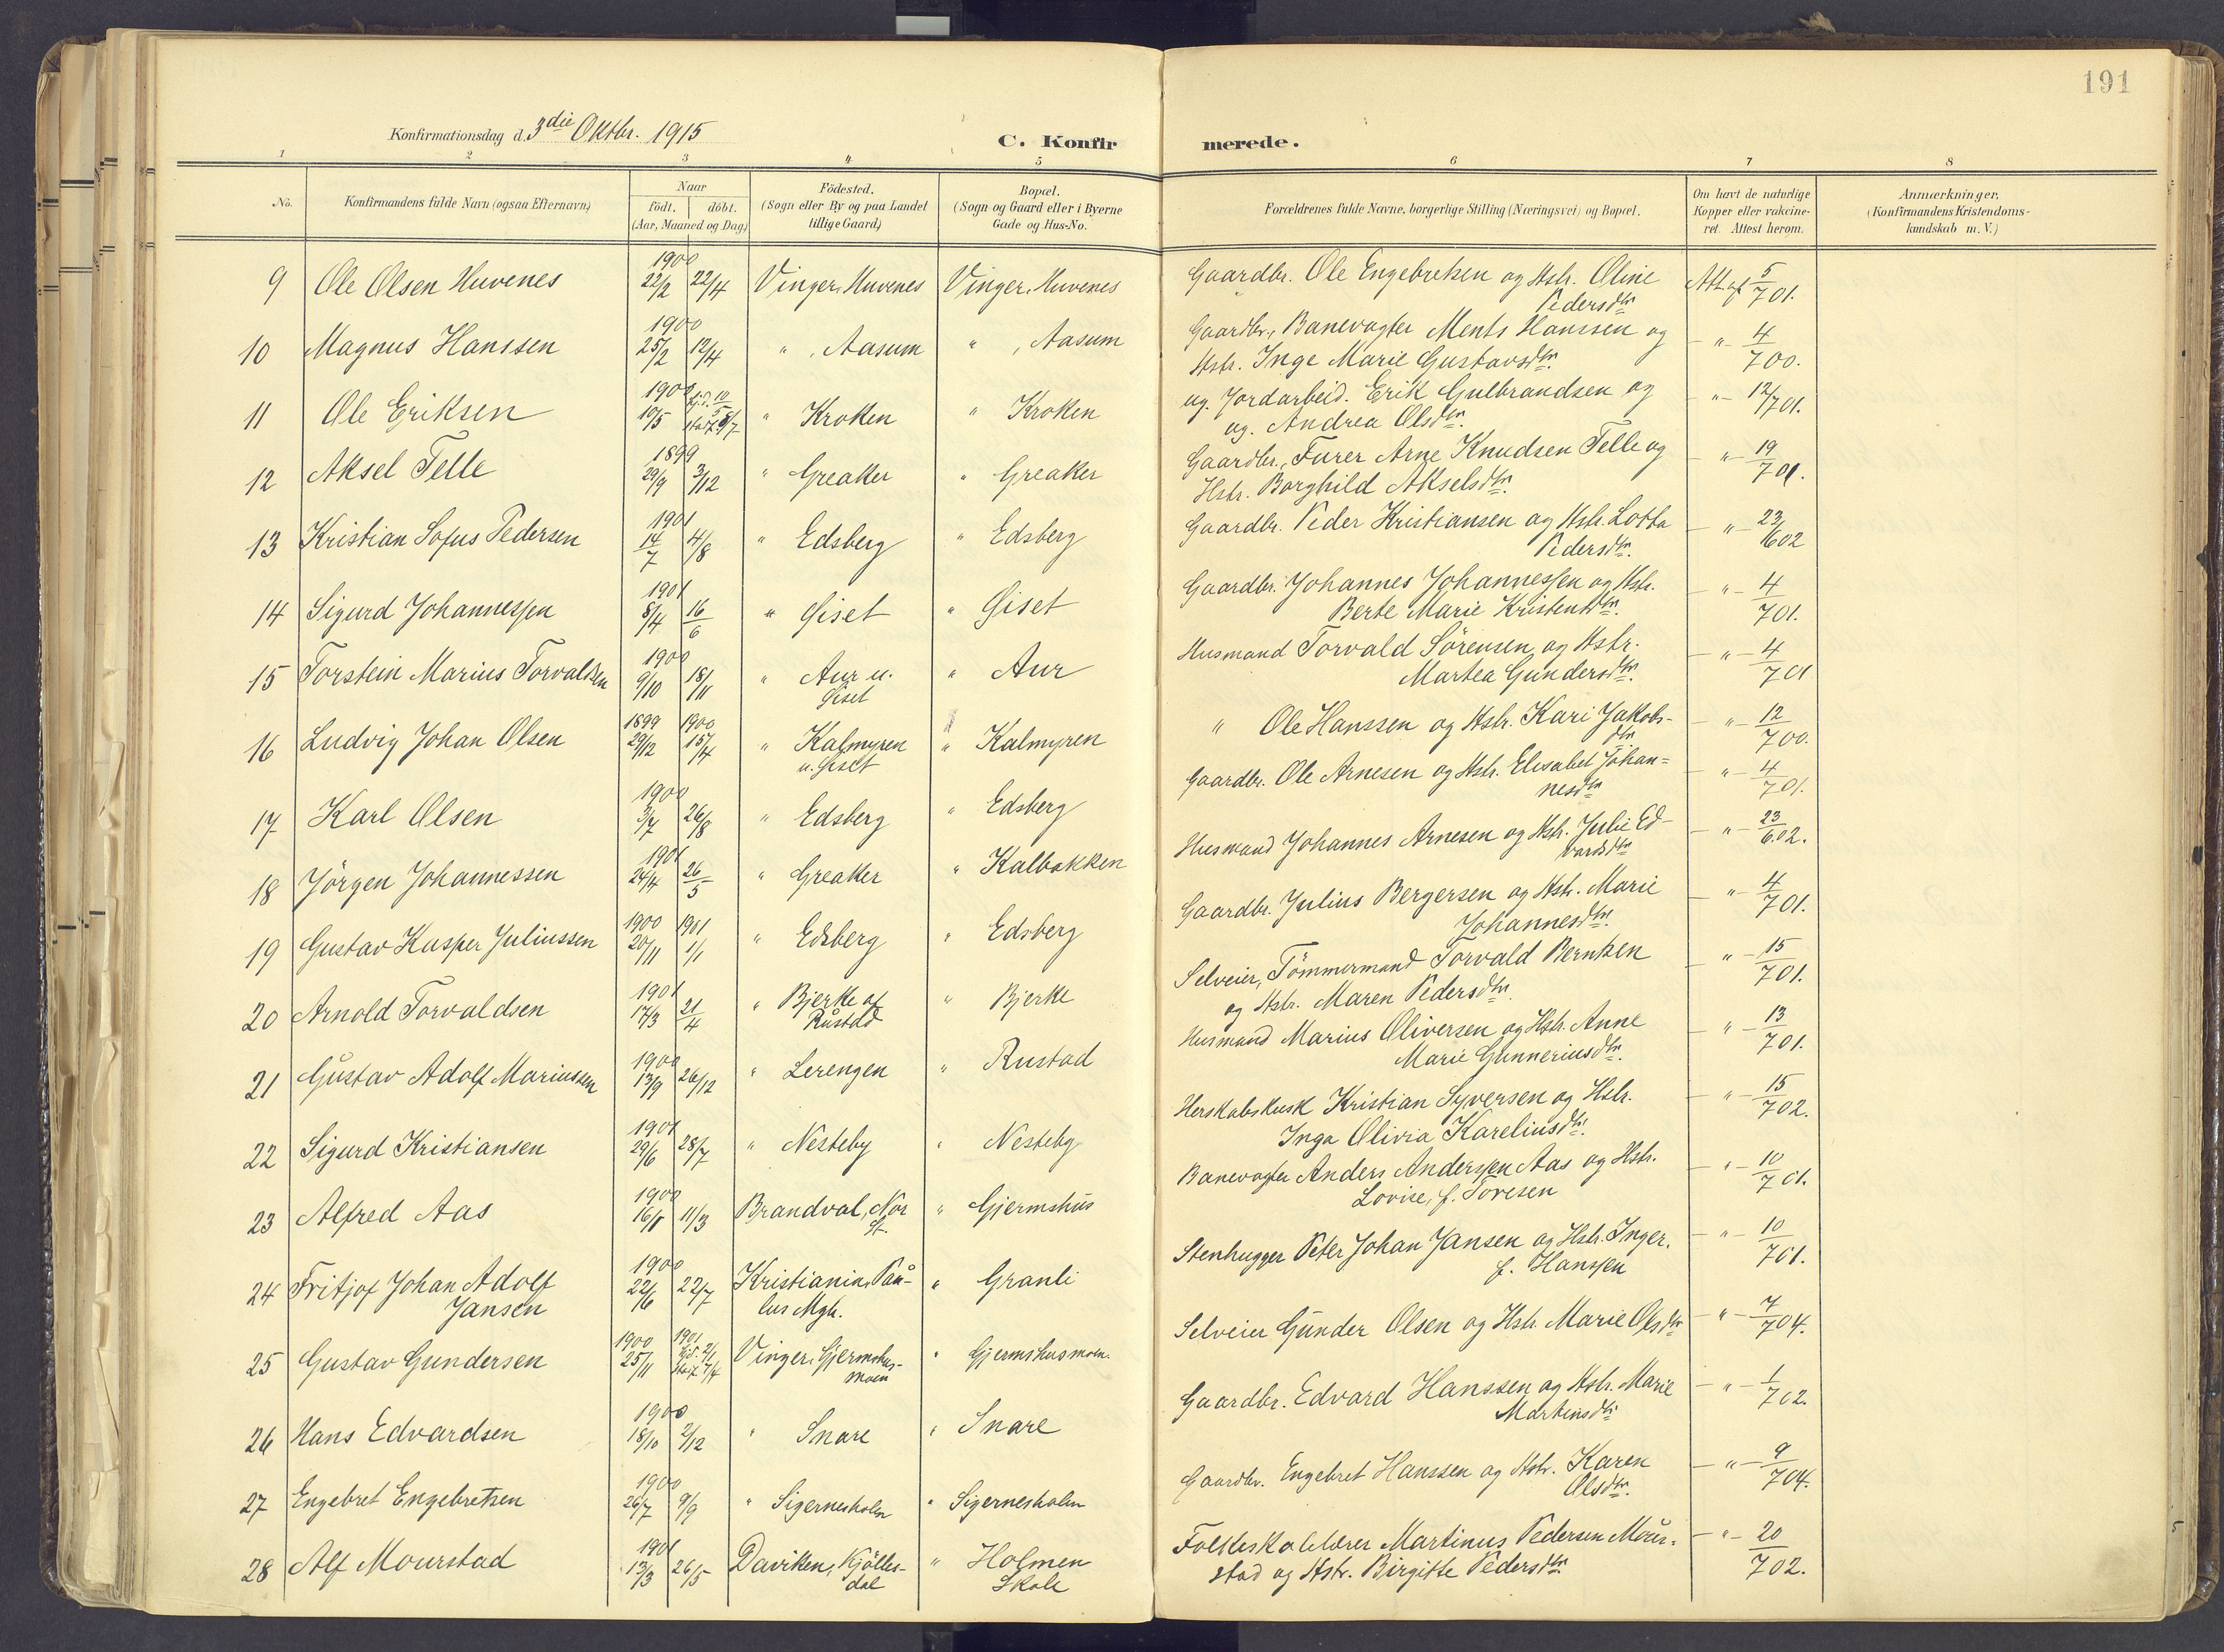 191
Konfirmationsdag d. 3die Oktbr. 1915
C. Konfirmerede.
1 2 3 4 5 6 7 8
No. | Konfirmandens fulde Navn (ogsaa Efternavn) | Naar födt. döbt. (Aar, Maaned og Dag) | Födested. (Sogn eller By og paa Landet tillige Gaard) | Bopæl. (Sogn og Gaard eller i Byerne Gade og Hus-No. | Forældrenes fulde Navne, borgerlige Stilling (Næringsvei) og Bopæl. | Om havt de naturlige Kopper eller vakcineret. Attest herom. | Anmærkninger. (Konfirmandens Kristendomskundskab m. V.)
9 Ole Olsen Huvenes 1900 22/2 22/4 Vinger, Huvenes Vinger, Huvenes Gaardbr. Ole Engebretsen og Hstr. Oline Pedersdtr. Att. af 5/7 01.
10 Magnus Hanssen 1900 25/2 12/4 " , Aasum " , Aasum Gaardbr., Banevogter Ments Hanssen og Hstr. Inge Marie Gustavsdtr. - " - 4/7 00.
11 Ole Eriksen 1900 10/5 hjd. 10/5 stadf. 8/7 " Kroken " Kroken ug. Jordarbeid. Erik Gulbrandsen og ug. Andrea Olsdtr. - " - 12/7 01.
12 Aksel Telle 1899 29/9 3/12 " Greaker " Greaker Gaardbr., Furer Arne Knudsen Telle og Hstr. Borghild Akselsdtr. - " - 19/7 01.
13 Kristian Sofus Pedersen 1901 14/7 4/8 " Edsberg " Edsberg Gaardbr. Peder Kristiansen og Hstr. Lotta Pedersdtr. - " - 23/6 02
14 Sigurd Johannessen 1901 8/4 16/6 " Giset " Giset Gaardbr. Johannes Johannessen og Hstr. Berte Marie Kristensdtr. - " - 4/7 01.
15 Torstein Marius Torvaldsen 1900 9/10 18/11 " Aur u. Giset " Aur Husmand Torvald Sörensen og Hstr. Martea Gundersdtr. - " - 4/7 01
16 Ludvig Johan Olsen 1899 29/12 1900 15/4 " Kalmyren u. Giset " Kalmyren " Ole Hanssen og Hstr. Kari Jakobsdtr - " - 12/7 00.
17 Karl Olsen 1900 3/7 26/8 " Edsberg " Edsberg Gaardbr. Ole Arnesen og Hstr. Elisabet Johannesdtr - " - 4/7 01.
18 Jörgen Johannessen 1901 24/4 26/5 " Greaker " Kalbakken Husmand Johannes Arnesen og Hstr. Julie Edvardsdtr - " - 23/6 02.
19 Gustav Kasper Juliussen 1900 20/11 1901 1/1 " Edsberg " Edsberg Gaardbr. Julius Bergersen og Hstr. Marie Johannesdtr. - " - 4/7 01.
20 Arnold Torvaldsen 1901 17/3 21/4 " Bjerke af Rustad " Bjerke Selveier, Tömmermand Torvald Berntsen og Hstr. Maren Pedersdtr. - " - 15/7 01.
21 Gustav Adolf Mariussen 1900 13/9 26/12 " Lerengen " Rustad Husmand Marius Oliversen og Hstr. Anne Marie Gunneriusdtr. - " - 13/7 01.
22 Sigurd Kristiansen 1901 29/6 28/7 " Nesteby " Nesteby Herskabskusk Kristian Syversen og Hstr. Inga Olivia Kareliusdtr. - " - 15/7 02.
23 Alfred Aas 1900 16/1 11/3 Brandval, Nor St. " Gjermshus Banevogter Anders Anderssen Aas og Hstr. Lovise, f. Toresen - " - 10/7 01.
24 Fritjof Johan Adolf Jansen 1900 22/6 22/7 Kristiania, Paulus Mgh. " Granli Stenhugger Peter Johan Jansen og Hstr. Inger, f. Hanssen - " - 10/7 01.
25 Gustav Gundersen 1900 25/11 1901 hjd. 2/1 stadf. 7/4 Vinger, Gjermshusmoen " Gjermshusmoen. Selveier Gunder Olsen og Hstr. Marie Olsdtr - " - 7/7 04.
26 Hans Edvardsen 1900 18/10 2/12 " Snare " Snare Gaardbr. Edvard Hanssen og Hstr. Marie Martinsdtr - " - 1/7 02.
27 Engebret Engebretsen 1900 26/7 9/9 " Sigernesholm " Sigernesholm Gaardbr. Engebret Hanssen og Hstr. Karen Olsdtr. - " - 9/7 04.
28 Alf Mourstad 1901 13/3 26/5 Daviken, Kjöllesdal " Holmen Skole Folkeskolelærer Martinus Pedersen Mourstad og Hstr. Birgitte Pedersdtr. - " - 20/7 02.